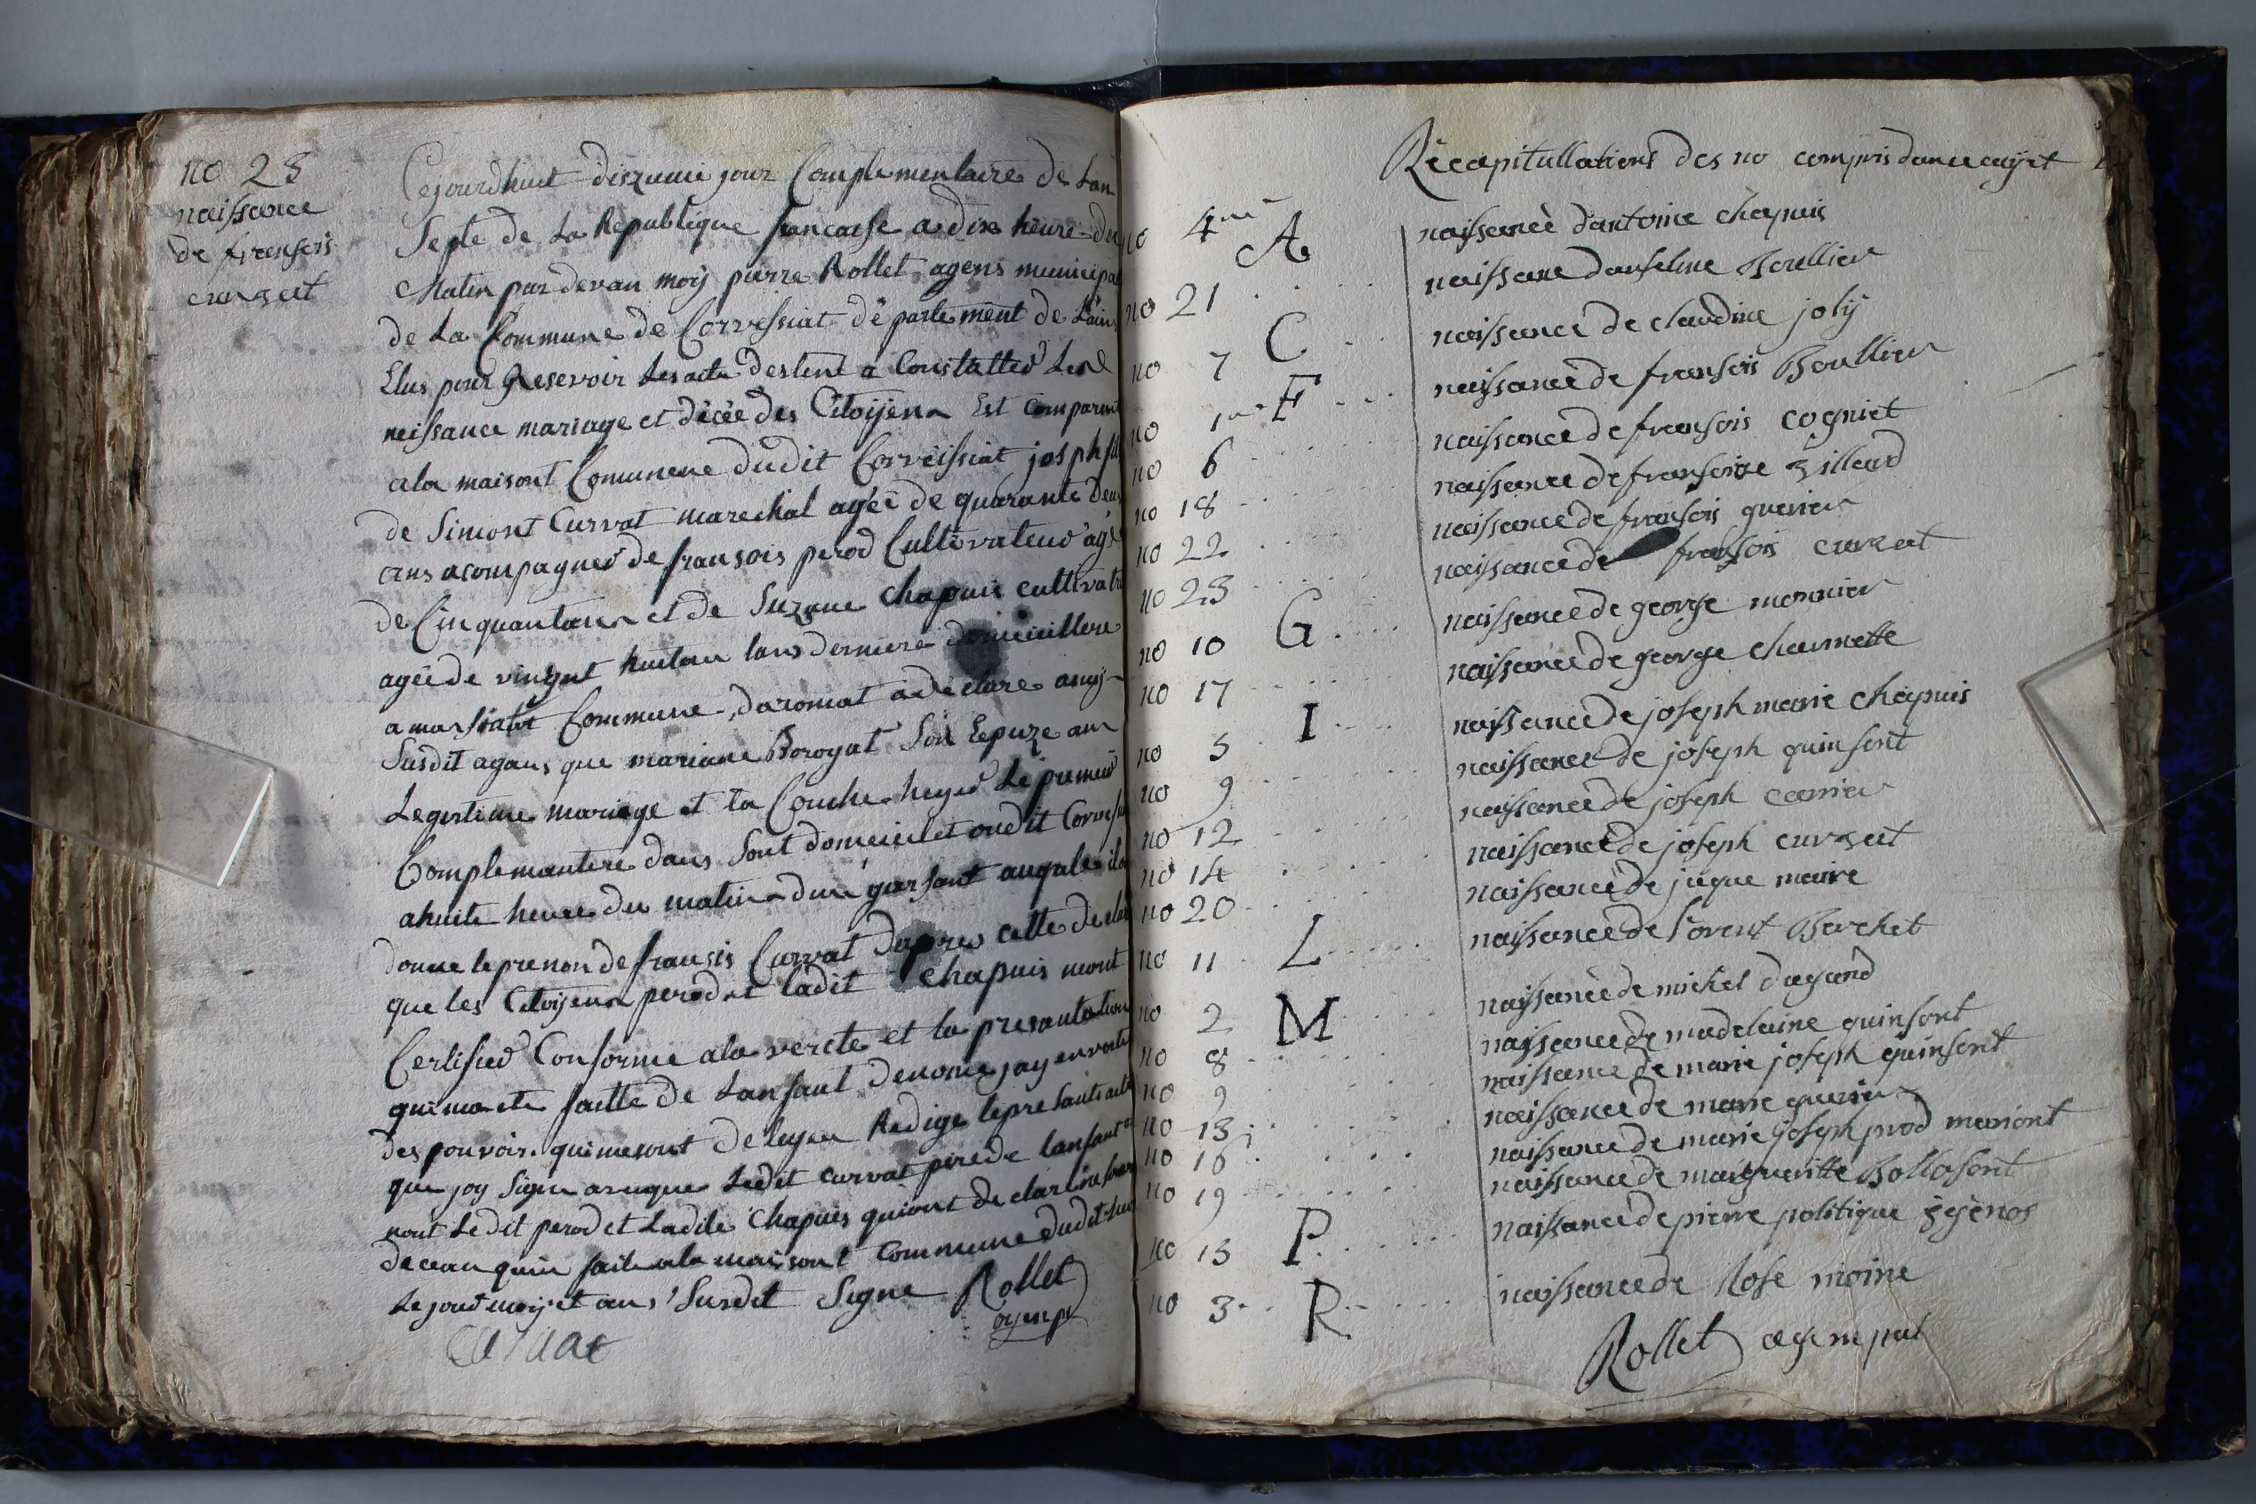 no 23
naissance
de fransois
curvat
Cejourdhuit diszieme jour Complementaire de Lan
Septe de La Republique francaise a dix heure du
Matin par devan moÿ pierre Rollet agens municipal
de La Commune de Corveissiat département de L'ain
Elus pour Resevoir Les acte destent a Constatter Les
neissance mariage et décée des Citoÿens Est comparut
a la maisont Comunene dudit Corveissiat joseph fils
de Simont Curvat marechal agée de quarante deux
ans acompagner de fransois perod Cultivateur agé
de Cinquantans et de Suzane chapuis cultivatri
agée de vingnt huitan lans derniere domicilliere
a marsiatte Commune daromat a declare amoÿ
Susdit agans que mariane Boroyat Son Epuze an
Legistime mariage et ta Couche heyer Le premier
Complemantere dans Sont domiciel et oudit Corveissia
ahuite heure du matin dun garsont auquale ila
donne le prenon de fransis Curvat dapres cette decla
que les Citoÿens perod et ladit chapuis mont
Certifier Conforme ala verete et la presantation
qui ma ete faitte de Lanfant denome jay en vertu
des pouvoir qui me sont delegue Redige le presante acte
que joy Signe aveque Ledit curvat pere de lanfant et
nont Ledit perod et Ladite Chapuis qui ont declare ne savoir
de ceau quin faite ala maisont Commune dudit lieu
Le jour mois et ans Susdit Signe Rollet
agenpl
Curvat
Récapitullations des no compris dans ce cayet
no 4me A naissance dantoine chapuis
no 21 naissane danseline Boullier
no 7 C naissance de claudine joly
no 1er F naissance de fransois Boullier
no 6 naissance de fransois cogniet
no 18 naissance de fransoise Villard
no 22 naissance de fransois guerier
no 23 naissance de fransois curvat
no 10 G naissance de george monnier
no 17 naissance de george charmette
no 5 I naissance de joseph marie chapuis
no 9 naissance de joseph quinsont
no 12 naissance de joseph carrier
no 14 naissance de joseph curvat
no 20 naissance de jaque maire
no 11 L naissance de Lorent Berchet
no 2 M naissance de michel dagand
no 8 naissance de madelaine quinsont
no 9 naissance de marie joseph quinsont
no 13 naissance de marie guerier
no 16 naissance de marie joseph prod mariont
no 19 naissance de margueritte Bollosont
no 15 P naissance de pierre politique gÿenos
no 3 R naissance de Rose moine
Rollet agenmpal